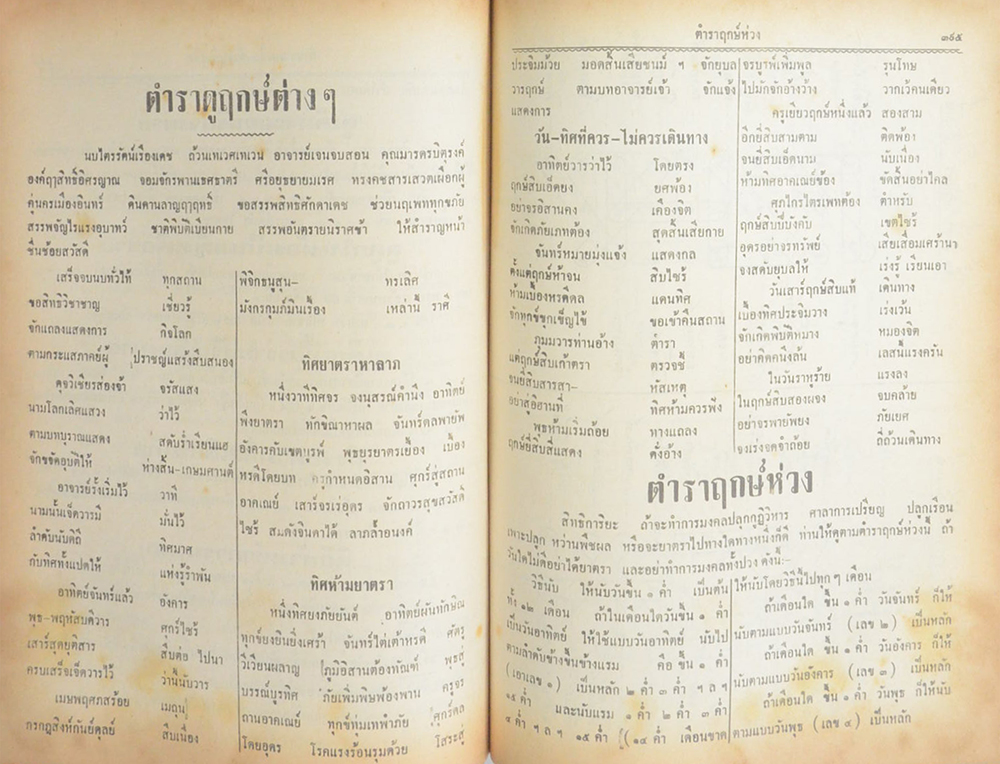 ตำราดูฤกษ์ต่าง ๆ
นบไตรรัตน์เรืองเดช ถ้วนเทเวศเทเวน อาจารย์เจนจบสอน คุณมารดรบิตุรงค์
องค์ฤๅสิทธิ์อิศรญาณ จอมจักรพานเรศธาตรี ศรีอยุธยายมเรศ ทรงคชสารเสวตเผือกผู้
คู่นครเมืองอินทร์ ดินดานลาญฤๅฤทธิ์ ขอสรรพสิทธิศักดาเดช ช่วยนฤเพททุกขภัย
สรรพจัญไรแรงอุบาทว์ ชาติพิบัติเบียนกาย สรรพอันตรายนิราศช้า ให้สำราญหน้า
ชื่นช้อยสวัสดิ์
เสร็จจบนบทั่วไท้ ทุกสถาน
ขอสิทธิวิชาชาญ เชี่ยวรู้
จักแถลงแสดงการ กิจโลก
ตามกระแสภาคย์ผู้ ปราชญ์แสร้งสืบสนอง
ดุจวิเชียรส่องจ้า จรัสแสง
นามโลกเลิศแสวง ว่าไว้
ตามบทบุราณแสดง สดับร่ำเรียนแฮ
จักขจัดอุบัติให้ ห่างสิ้น-เกษมศานต์
อาจารย์รั้งเริ่มไว้ วาที
นามนั้นเจ็ดวารมี มั่นไว้
ลำดับนับดิถี ทิศมาศ
กับทิศทั้งแปดให้ แห่งรู้รำพัน
อาทิตย์จันทร์แล้ว อังคาร
พุธ-พฤหัสบดีวาร ศุกร์ใชร้
เสาร์สุดยุติสาร สืบต่อ ไปนา
ครบเสร็จเจ็ดวารไว้ ว่านี้นับวาร
เมษพฤศภสร้อย เมถุน
กรกฎสิงห์กันย์ดุลย์ สืบเนื่อง
พิจิกธนูสุน- ทรเลิศ
มังกรกุมภ์มีนเรื้อง เหล่านี้ ราศี
ทิศยาตราหาลาภ
หนึ่งวาทีทิศจร จงนุสรณ์คำนึง อาทิตย์
พึงยาตรา ทักขิณาหาผล จันทร์ดลพายัพ
อังคารคับเขตบูรพ์ พุธยูรยาตรเยื้อง เบื้อง
หรดีโดยบท ครูกำหนดอีสาน ศุกร์สู่สถาน
อาคเณย์ เสาร์จรเร่อุดร จักถาวรสุขสวัสดิ์
ไซร้ สมดังจินดาได้ ลาภล้ำอนงค์
ทิศห้ามยาตรา
หนึ่งทิศยงภัยยันต์ อาทิตย์ผันทักษิณ
ทุกข์ยงยินยิ่งเศร้า จันทร์ไต่เต้าหรดี ศัตรู
วิเวียนผลาญ ภูมิอิสานต้องทัณฑ์ พุธสู่
บรรณ์บูรทิศ ภัยเพิ่มพิษพ้องพาน ครูจร
ถานอาคเณย์ ทุกข์ทุ่มเทพำนัก ศุกร์ดล
โดยอุดร โรคแรงร้อนรุมด้วย โสระสู่
ตำราฤกษ์ห่วง ๓๙๕
ประจิมม้วย มอดสิ้นเสียชนม์ ฯ จักยุบล
วารฤกษ์ ตามบทอาจารย์เจ้า จักแจ้ง
แสดงการ
วัน-ทิศที่ควร-ไม่ควรเดินทาง
อาทิตย์วารว่าไว้ โดยตรง
ฤกษ์สิบเอ็ดยง ยศพ้อง
อย่าจรอิสานคง เคืองจิต
จักเกิดภัยเภทต้อง สุดสิ้นเสียกาย
จันทร์หมายมุ่งแจ้ง แสดงกล
ตั้งแต่ฤกษ์ห้าจน สิบใชร้
ห้ามเบื้องหรดีดล แดนทิศ
จักทุกข์ขุกเข็ญไข้ ขอเข้าคืนสถาน
ภูมมวารท่านอ้าง ตำรา
แต่ฤกษ์สิบเก้าตรา ตรวจชี้
จนยี่สิบสารสา- หัสเหตุ
อย่าสู่อิฮานที่ ทิศห้ามควรฟัง
พุธห้ามเริ่มถ้อย ทางแถลง
ฤกษ์ยี่สิบสี่แสดง ดั่งอ้าง
จรบูรพ์เพิ่มพูล รุนโทษ
ไปมักจักอ้างว้าง วากเว้คนเดียว
ครูเยียวฤกษ์หนึ่งแล้ว สองสาม
อีกยี่สิบสามตาม ติดพ้อง
จนยี่สิบเอ็ดนาม นับเนื่อง
ห้ามทิศอาคเณย์ข้อง ขัดสิ้นอย่าไคล
ศุภไกรไตรเพทต้อง ตำหรับ
ฤกษ์สิบบี่บังคับ เขตไชร้
อุดรอย่าจรทรัพย์ เสียเสื่อมเศร้านา
จงสดับยุบลให้ เร่งรู้ เรียนเอา
วันเสาร์ฤกษ์สิบแท้ เดินทาง
เบื้องทิศประจิมวาง เร่งเว้น
จักเกิดพิบัติหมาง หมองจิต
อย่าคิดคนึงลิ้น เลสนี้แรงครัน
ในวันราหูร้าย แรงลง
ในฤกษ์สิบสองผจง จบคล้าย
อย่าจรพายัพยง ภัยเยศ
จงเร่งจดจำถ้อย ถี่ถ้วนเดินทาง
ตำราฤกษ์ห่วง
สิทธิการิยะ ถ้าจะทำการมงคลปลูกกุฏิวิหาร ศาลาการเปรียญ ปลูกเรือน
เพาะปลูก หว่านพืชผล หรือจะยาตราไปทางใดทางหนึ่งก็ดี ท่านให้ดูตามตำราฤกษ์ห่วงนี้ ถ้า
วันใดไม่ดีอย่าได้ยาตรา และอย่าทำการมงคลทั้งปวง ดังนี้:-
วิธีนับ ให้นับวันขึ้น ๑ ค่ำ เป็นต้น
ทั้ง ๑๒ เดือน ถ้าในเดือนใดวันขึ้น ๑ ค่ำ
เป็นวันอาทิตย์ ให้ใช้แบบวันอาทิตย์ นับไป
ตามลำดับข้างขึ้นข้างแรม คือ ขึ้น ๑ ค่ำ
(เอาเลข ๑) เป็นหลัก ๒ ค่ำ ๓ ค่ำ ฯ ล ฯ
๑๕ ค่ำ และนับแรม ๑ ค่ำ ๒ ค่ำ ๓ ค่ำ
๔ ค่ำ ฯ ล ฯ ๑๕ ค่ำ (๑๔ ค่ำ เดือนขาด)
ให้นับโดยวิธีนี้ไปทุก ๆ เดือน
ถ้าเดือนใด ขึ้น ๑ ค่ำ วันจันทร์ ก็ให้
นับตามแบบวันจันทร์ (เลข ๒) เป็นหลัก
ถ้าเดือนใด ขึ้น ๑ ค่ำ วันอังคาร ก็ให้
นับตามแบบวันอังคาร (เลข ๓) เป็นหลัก
ถ้าเดือนใด ขึ้น ๑ ค่ำ วันพุธ ก็ให้นับ
ตามแบบวันพุธ (เลข ๔) เป็นหลัก